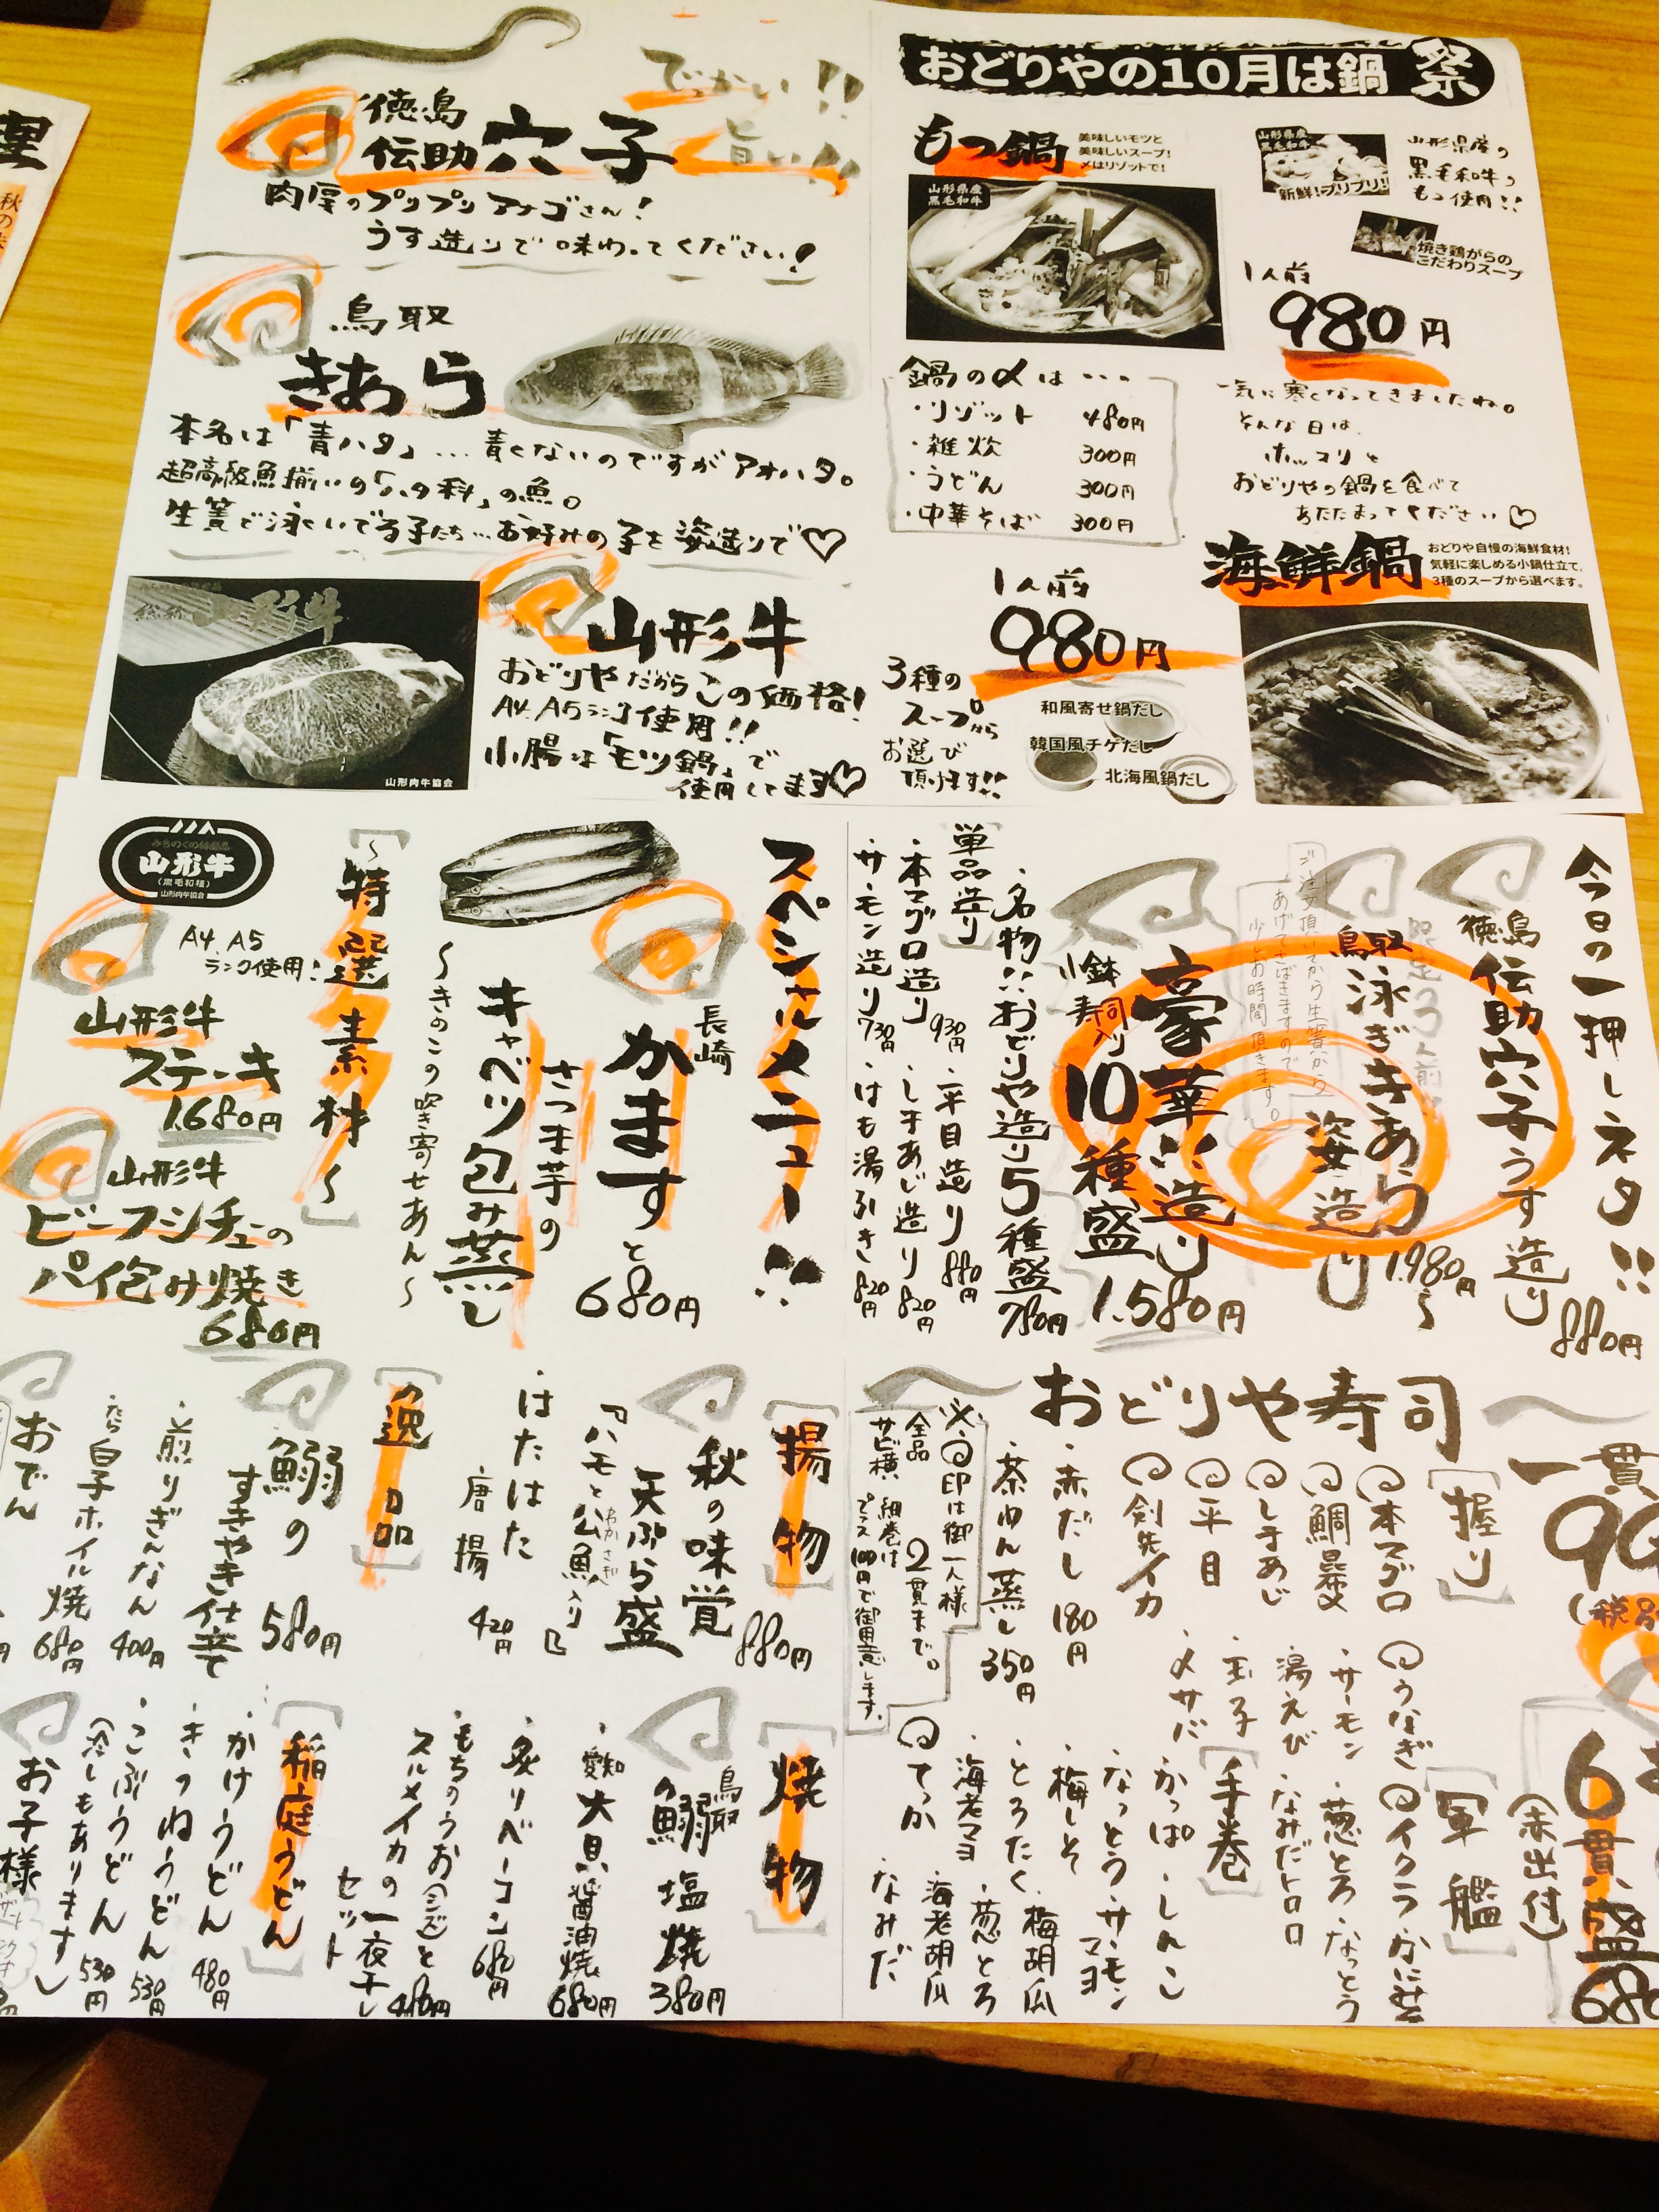 でっかい!!
旨い!!
徳島
伝助穴子
肉厚のプリプリアナゴさん!
うす造りで味わってください!
鳥取
きあら
本名は「青ハタ」…青くないのですがアオハタ。
超高級魚揃いの「ハタ科」の魚。
生簀で泳いでる子たち…お好みの子を姿造りで♡
山形牛
おどりやだからこの価格!
A4.A5ランク使用!!
小腸は「モツ鍋」で
使用してます♡
総称 山形牛
山形肉牛協会
おどりやの10月は鍋祭
もつ鍋
美味しいモツと
美味しいスープ!
〆はリゾットで!
山形県産
黒毛和牛
山形県産
黒毛和牛
新鮮!プリプリ!
山形県産の
黒毛和牛の
もつ使用!!
焼き鶏がらの
こだわりスープ
1人前
980円
鍋の〆は…
・リゾット 480円
・雑炊 300円
・うどん 300円
・中華そば 300円
一気に寒くなってきましたね。
そんな日は、
ホッコリと
おどりやの鍋を食べて
あたたまってください♡
海鮮鍋
おどりや自慢の海鮮食材!
気軽に楽しめる小鍋仕立て。
3種のスープから選べます。
1人前
980円
3種の
スープから
お選び
頂けます!!
和風寄せ鍋だし
韓国風チゲだし
北海風鍋だし
今日の一押しネタ!!
徳島
伝助穴子うす造り 880円
限定3人前
鳥取
泳ぎきあら
姿造り 1.980円〜
ご注文頂いてから生簀から
あげてさばきますので
少しお時間頂きます。
豪華!!造り
小鉢
寿司入り
10種盛 1.580円
・名物!!おどりや造り5種盛 980円
単品造り
・本マグロ造り 930円
・サーモン造り 730円
・平目造り 880円
・しまあじ造り 820円
・はも湯引き 820円
スペシャルメニュー!!
長崎
かますと 680円
さつま芋の
キャベツ包み蒸し
〜きのこの吹き寄せあん〜
〜特選素材〜
みちのくの特選品
山形牛
(黒毛和種)
山形肉牛協会
A4.A5
ランク使用!
山形牛
ステーキ
1.680円
山形牛
ビーフシチューの
パイ包み焼き
680円
おどりや寿司
一貫
(税別
握り
本マグロ
鯛昆〆
しまあじ
平目
剣先イカ
うなぎ
・サーモン
湯えび
玉子
〆サバ
・赤だし 180円
・茶わん蒸し 350円
※印は御一人様
全品 2貫まで。
サビ横、細巻は
プラス100円で御用意します。
軍艦
イクラ
かに味噌
・葱とろ
・なっとう
なみだトロロ
手巻
かっぱ
・しんこ
なっとう
・サーモンマヨ
・梅しそ
・梅胡瓜
・とろたく
・葱とろ
・海老マヨ
海老胡瓜
てっか
なみだ
6貫盛
(赤出付)
揚物
秋の味覚
天ぷら盛 880円
『ハモと公魚入り』
・はたはた
唐揚 420円
逸品
鰯の
すきやき仕立て 580円
・煎りぎんなん 400円
・たら白子ホイル焼 680円
おでん
焼物
鳥取
鰯塩焼 380円
・愛知
大貝醤油焼 680円
・炙りベーコン 680円
・もちのうお(シズ)と
スルメイカの一夜干し
セット 480円
稲庭うどん
・かけうどん 480円
・きつねうどん 530円
・こぶうどん 530円
(冷しもあります)
お子様